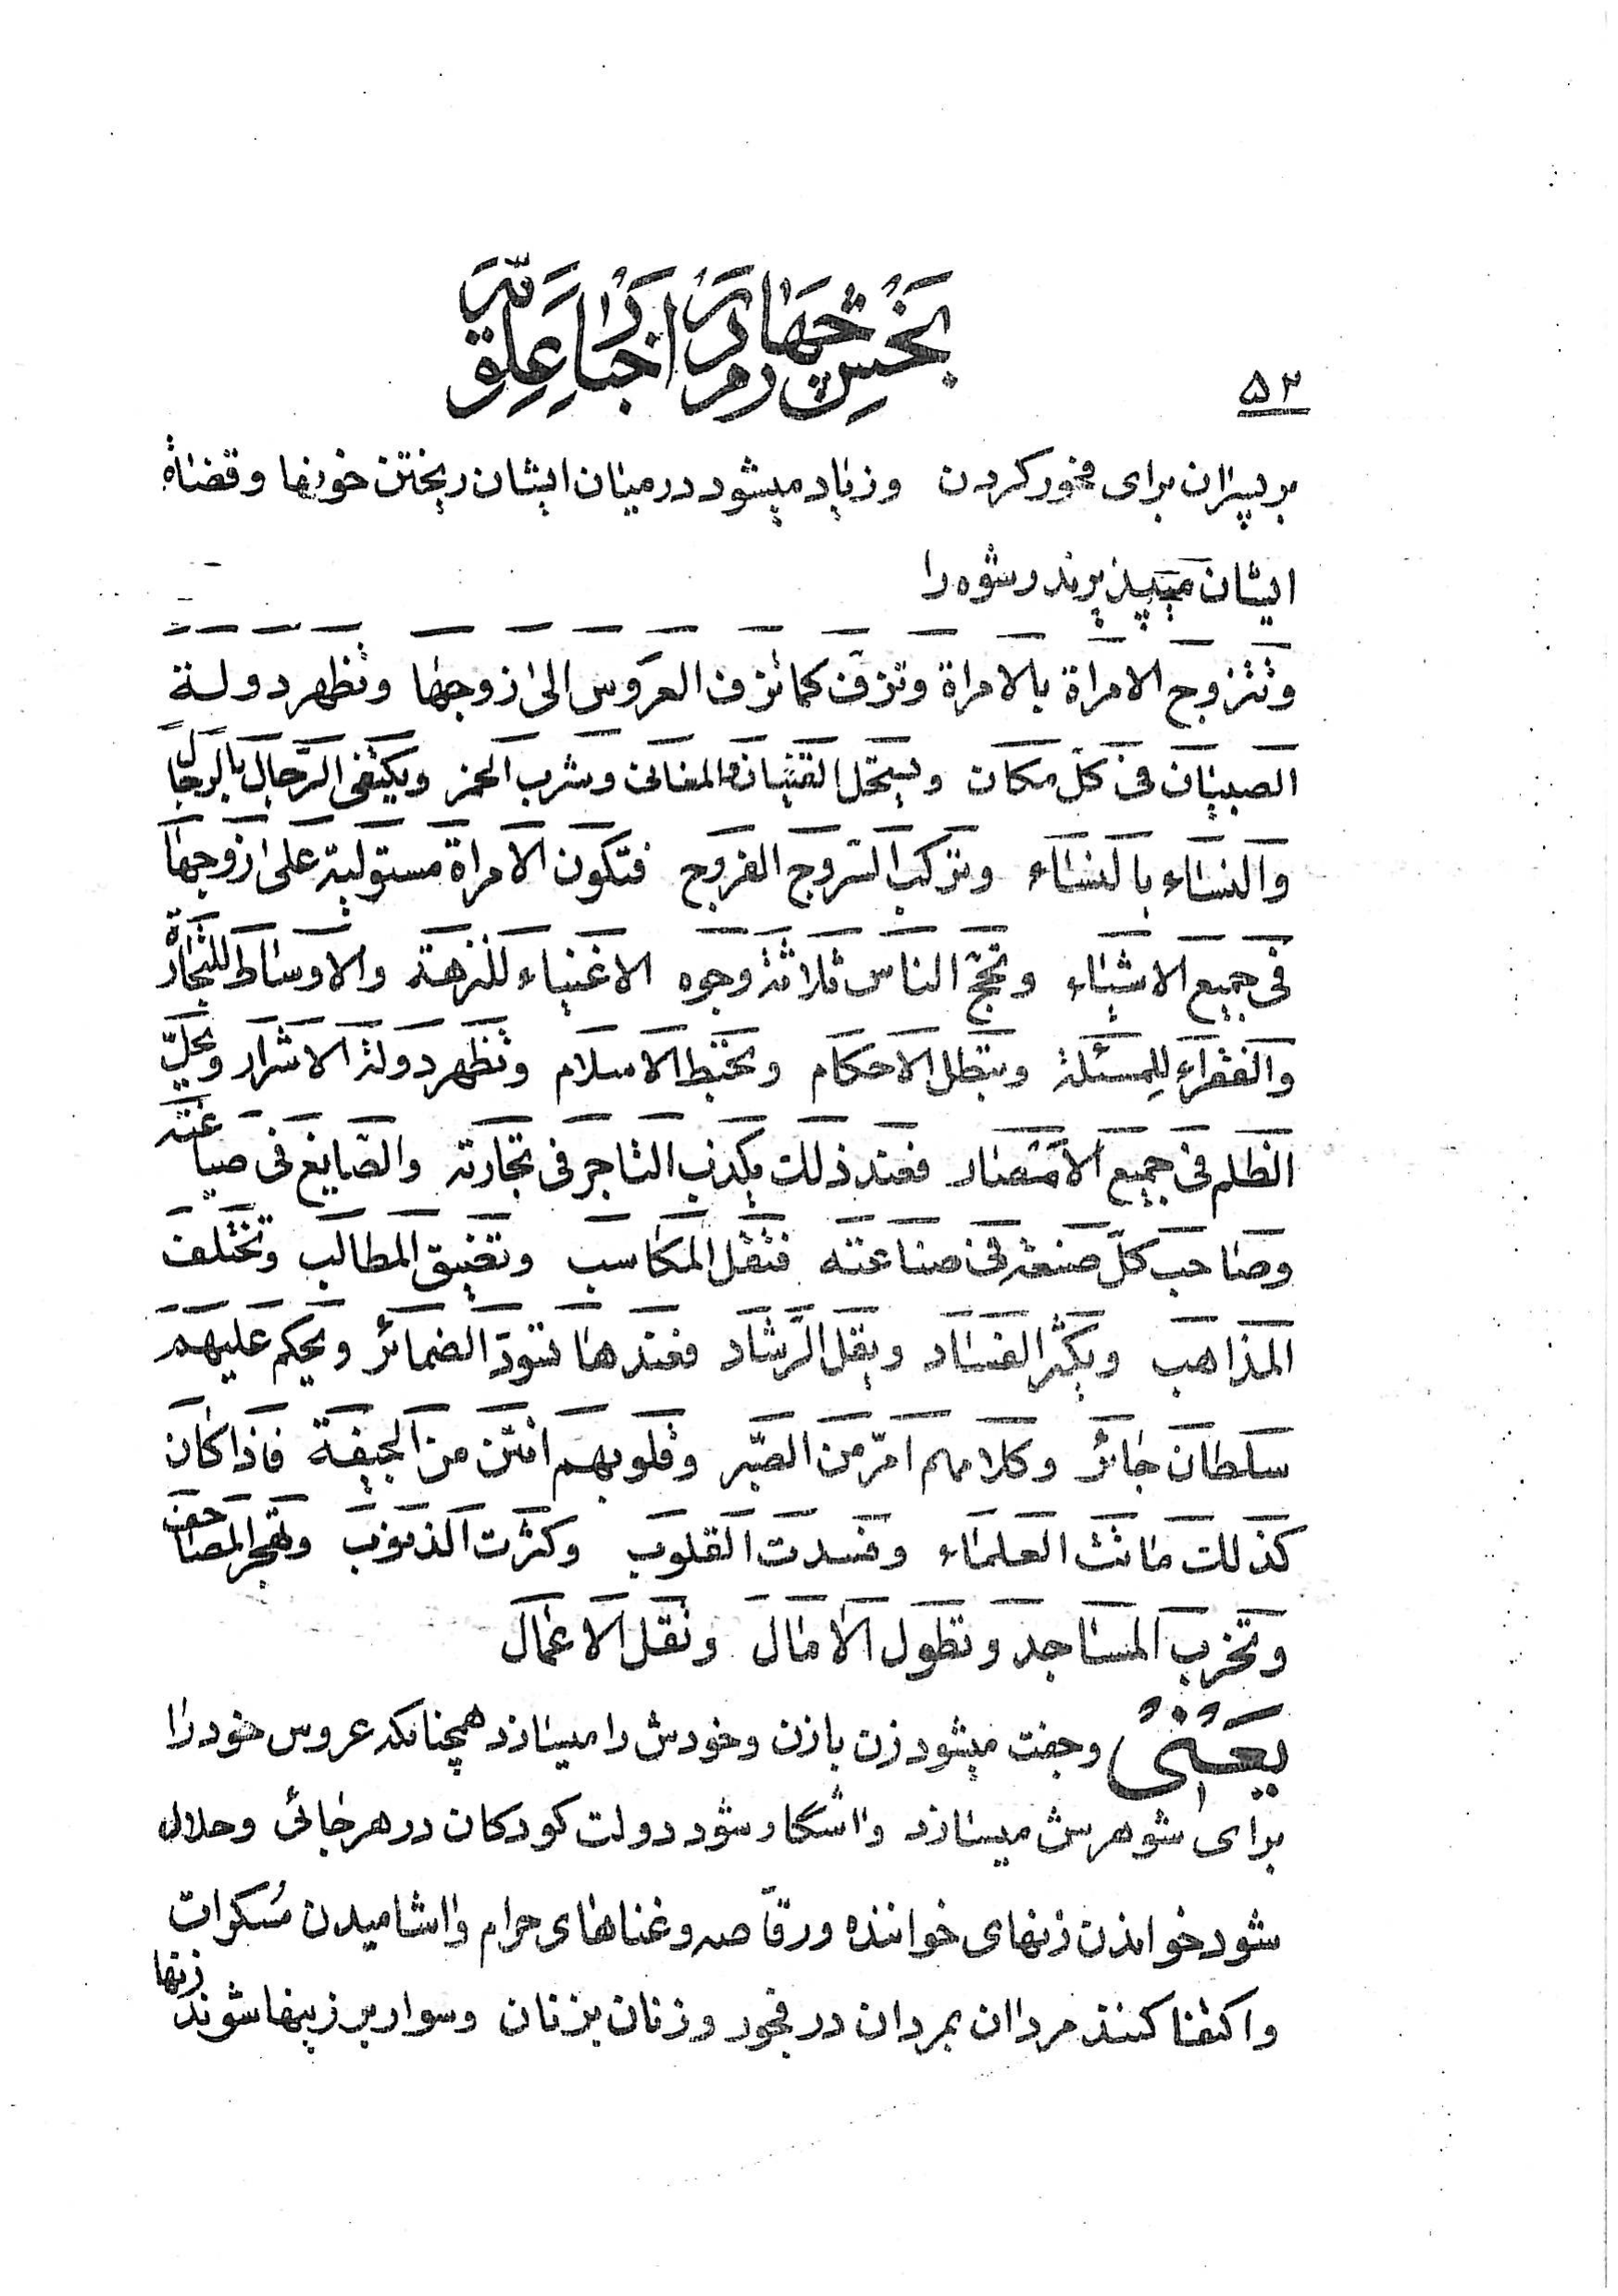 بخش چهارم در اخبار علویّه
۵۲
بر پسران برای فجور کردن و زیاد میشود در میان ایشان ریختن خونها و قضاة
ایشان میپذیرند رشوه را
وتتزوج الامراة بالامراة وتزفّ کما تزف العروس الی زوجها وتظهر دولة
الصبیان فی کلّ مکان ویستحل الفتیان المغانی وشرب الخمر ویکتفی الرّجال بالرجال
والنساء بالنساء وترکب السّروج الفروج فتکون الامراة مستولیة علی ازوجها
فی جمیع الاشیاء وتحجّ الناس ثلاثة وجوه الاغنیاء للنزهة والاوساط للتجارة
والفقراء للمسئلة وتبطل الاحکام ویحبط الاسلام وتظهر دولة الاشرار ویحلّ
الظلم فی جمیع الامصار فعند ذلك یکذب التاجر فی تجارته والصّایغ فی صیاغته
وصاحب کلّ صنعة فی صناعته فتقل المکاسب وتضیق المطالب وتختلف
المذاهب ویکثر الفساد ویقل الرّشاد فعندها تسودّ الضمائر ویحکم علیهم
سلطان جائر وکلامهم امرّ من الصّبر وقلوبهم انتن من الجیفة فاذا کان
کذلك ماتت العلماء وفسدت القلوب وکثرت الذنوب وتهجر المصاحف
وتخرب المساجد وتطول الامال وتقل الاعمال
یعنی وجفت میشود زن بازن وخودش را میسازد همچنانکه عروس خود را
برای شوهرش میسازد واشکار شود دولت کودکان در هر جائی وحلال
شود خواندن زنهای خواننده ورقّاصه وغناهای حرام واشامیدن مُسکرات
واکتفا کنند مردان بمردان در فجور وزنان بزنان وسوار بر زینها شوند زنها